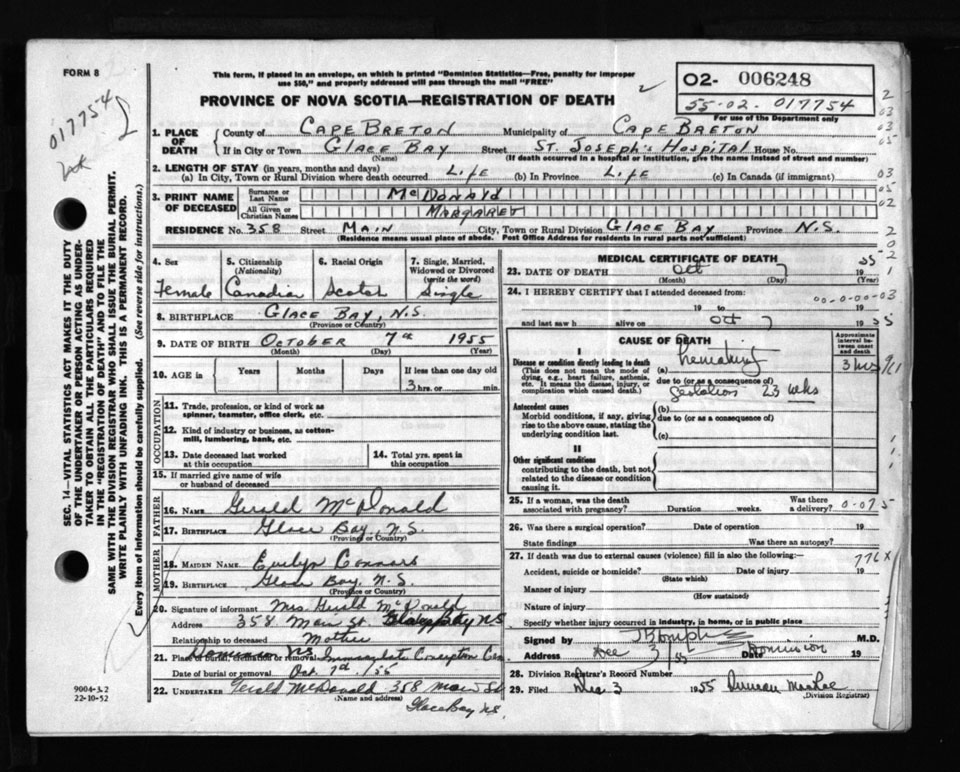 FORM 8
This form, if placed in an envelope, on which is printed "Dominion Statistics—Free, penalty for improper
use $50," and properly addressed will pass through the mail "FREE"
O2- 006248
55-02- 017754
For use of the Department only
017754
PROVINCE OF NOVA SCOTIA—REGISTRATION OF DEATH
SEC. 14—VITAL STATISTICS ACT MAKES IT THE DUTY
OF THE UNDERTAKER OR PERSON ACTING AS UNDER-
TAKER TO OBTAIN ALL THE PARTICULARS REQUIRED
IN THE "REGISTRATION OF DEATH" AND TO FILE THE
SAME WITH THE DIVISION REGISTRAR WHO SHALL ISSUE THE BURIAL PERMIT.
WRITE PLAINLY WITH UNFADING INK. THIS IS A PERMANENT RECORD.
Every item of information should be carefully supplied. (See reverse side for instructions.)
1. PLACE OF DEATH County of CAPE BRETON Municipality of CAPE BRETON
If in City or Town GLACE BAY Street ST. JOSEPH'S HOSPITAL House No.
(Name) (If death occurred in a hospital or institution, give the name instead of street and number)
2. LENGTH OF STAY (in years, months and days)
(a) In City, Town or Rural Division where death occurred LIFE (b) In Province LIFE (c) In Canada (if immigrant)
3. PRINT NAME OF DECEASED Surname or Last Name McDONALD
All Given or Christian Names MARGARET
RESIDENCE No. 358 Street MAIN City, Town or Rural Division GLACE BAY Province N.S.
(Residence means usual place of abode. Post Office Address for residents in rural parts not sufficient)
4. Sex 5. Citizenship (Nationality) 6. Racial Origin 7. Single, Married, Widowed or Divorced (write the word)
Female Canadian Scotch Single
8. BIRTHPLACE GLACE BAY, N.S.
(Province or Country)
9. DATE OF BIRTH OCTOBER 7th 1955
(Month) (Day) (Year)
10. AGE in Years Months Days If less than one day old
3 hrs. or min.
OCCUPATION
11. Trade, profession, or kind of work as
spinner, teamster, office clerk, etc.
12. Kind of industry or business, as cotton-
mill, lumbering, bank, etc.
13. Date deceased last worked
at this occupation
14. Total yrs. spent in
this occupation
15. If married give name of wife
or husband of deceased
FATHER
16. NAME Gerald McDonald
17. BIRTHPLACE Glace Bay, N.S.
(Province or Country)
MOTHER
18. MAIDEN NAME Evelyn Connors
19. BIRTHPLACE Glace Bay, N.S.
(Province or Country)
20. Signature of informant Mrs Gerald McDonald
Address 358 Main St. Glace Bay NS
Relationship to deceased Mother
21. Place of burial, cremation or removal Dominion NS Immaculate Conception Cem
Date of burial or removal Oct 7th /55
22. UNDERTAKER Gerald McDonald 358 Main St
(Name and address)
Glace Bay NS.
9004-3.2
22-10-52
MEDICAL CERTIFICATE OF DEATH
23. DATE OF DEATH Oct 7 1955
(Month) (Day)
24. I HEREBY CERTIFY that I attended deceased from:
19 to 19
and last saw h alive on Oct 7 1955
CAUSE OF DEATH
Approximate interval between onset and death
I
Disease or condition directly leading to death
(This does not mean the mode of
dying, e.g., heart failure, asthenia,
etc. It means the disease, injury, or
complication which caused death.)
(a) 3 hrs
due to (or as a consequence of)
gestation 23 wks
Antecedent causes
Morbid conditions, if any, giving
rise to the above cause, stating the
underlying condition last.
(b)
due to (or as a consequence of)
(c)
II
Other significant conditions
contributing to the death, but not
related to the disease or condition
causing it.
25. If a woman, was the death
associated with pregnancy? Duration weeks. Was there
a delivery?
26. Was there a surgical operation? Date of operation
State findings Was there an autopsy?
27. If death was due to external causes (violence) fill in also the following:—
776X
Accident, suicide or homicide? Date of injury 19
(State which)
Manner of injury
(How sustained)
Nature of injury
Specify whether injury occurred in industry, in home, or in public place
Signed by M.D.
Address Dec 3/55 Date Dominion 19
28. Division Registrar's Record Number
29. Filed Dec 3 1955 Duncan MacRae
(Division Registrar)